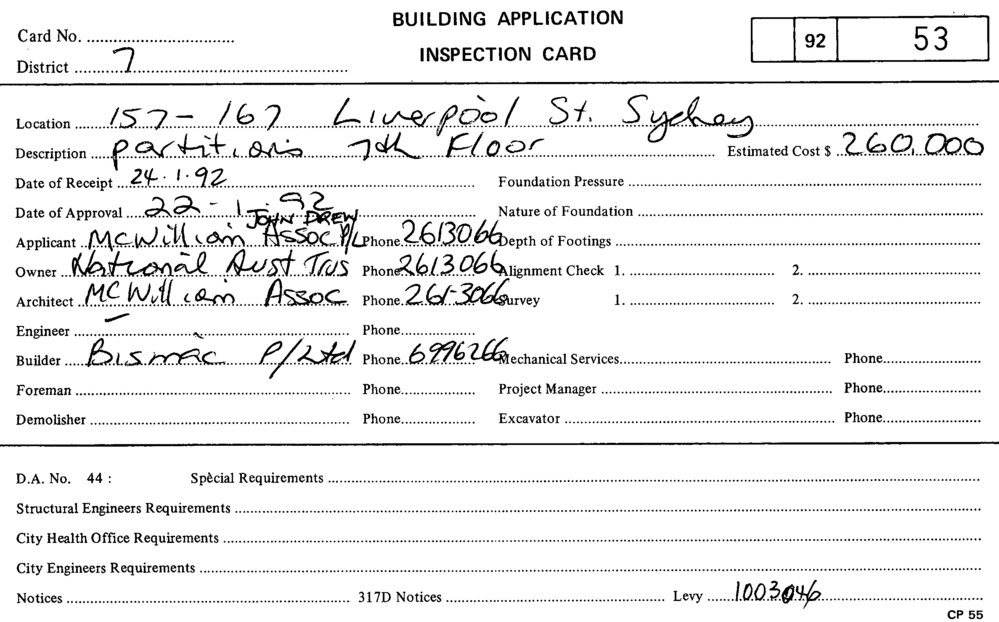 BUILDING APPLICATION
INSPECTION CARD
Card No. ..................
92 53
District ....7....
Location ....157 - 167 Liverpool St. Sydney....
Description ....partitions 7th Floor.... Estimated Cost $ ..260,000
Date of Receipt ...24.1.92.... Foundation Pressure ....................
Date of Approval ....22 - 1 - 92.... Nature of Foundation ....................
JOHN DREW
Applicant ..McWilliam Assoc P/L Phone..2613066 Depth of Footings ....................
Owner ..National Aust Trus Phone 2613066 Alignment Check 1. .................... 2. ....................
Architect ..McWilliam Assoc Phone..261-3066 Survey 1. .................... 2. ....................
Engineer .................... Phone....................
Builder ....Bismac P/Ltd Phone..6996266 Mechanical Services.................... Phone....................
Foreman .................... Phone.................... Project Manager .................... Phone....................
Demolisher .................... Phone.................... Excavator .................... Phone....................
D.A. No. 44 : Spècial Requirements ....................
Structural Engineers Requirements ....................
City Health Office Requirements ....................
City Engineers Requirements ....................
Notices .................... 317D Notices .................... Levy ......1003046....
CP 55